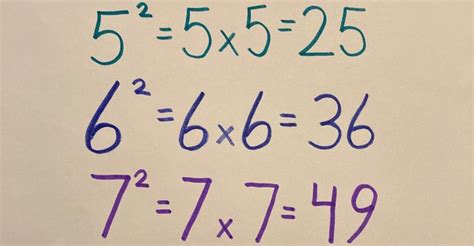 5²=5x5=25
6²=6x6=36
7²=7x7=49